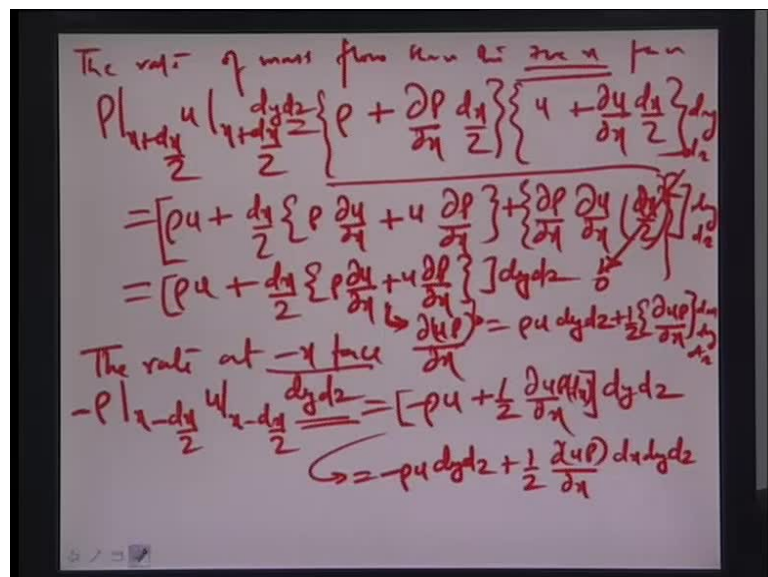 The rate of mass flow thru the +ve x face
ρ|_{x+dx/2} u|_{x+dx/2} dydz {ρ + ∂ρ/∂x dx/2}{u + ∂u/∂x dx/2} dy dz
= [ρu + dx/2 {ρ ∂u/∂x + u ∂ρ/∂x} + {∂ρ/∂x ∂u/∂x (dx/2)²}] dy dz
= [ρu + dx/2 {ρ ∂u/∂x + u ∂ρ/∂x}] dydz → 0
↳ ∂(uρ)/∂x = ρu dydz + 1/2 {∂uρ/∂x} dx dy dz
The rate at -x face
-ρ|_{x-dx/2} u|_{x-dx/2} dydz = [-ρu + 1/2 ∂uρ/∂x dx] dydz
↳ = -ρu dydz + 1/2 ∂(uρ)/∂x dxdydz